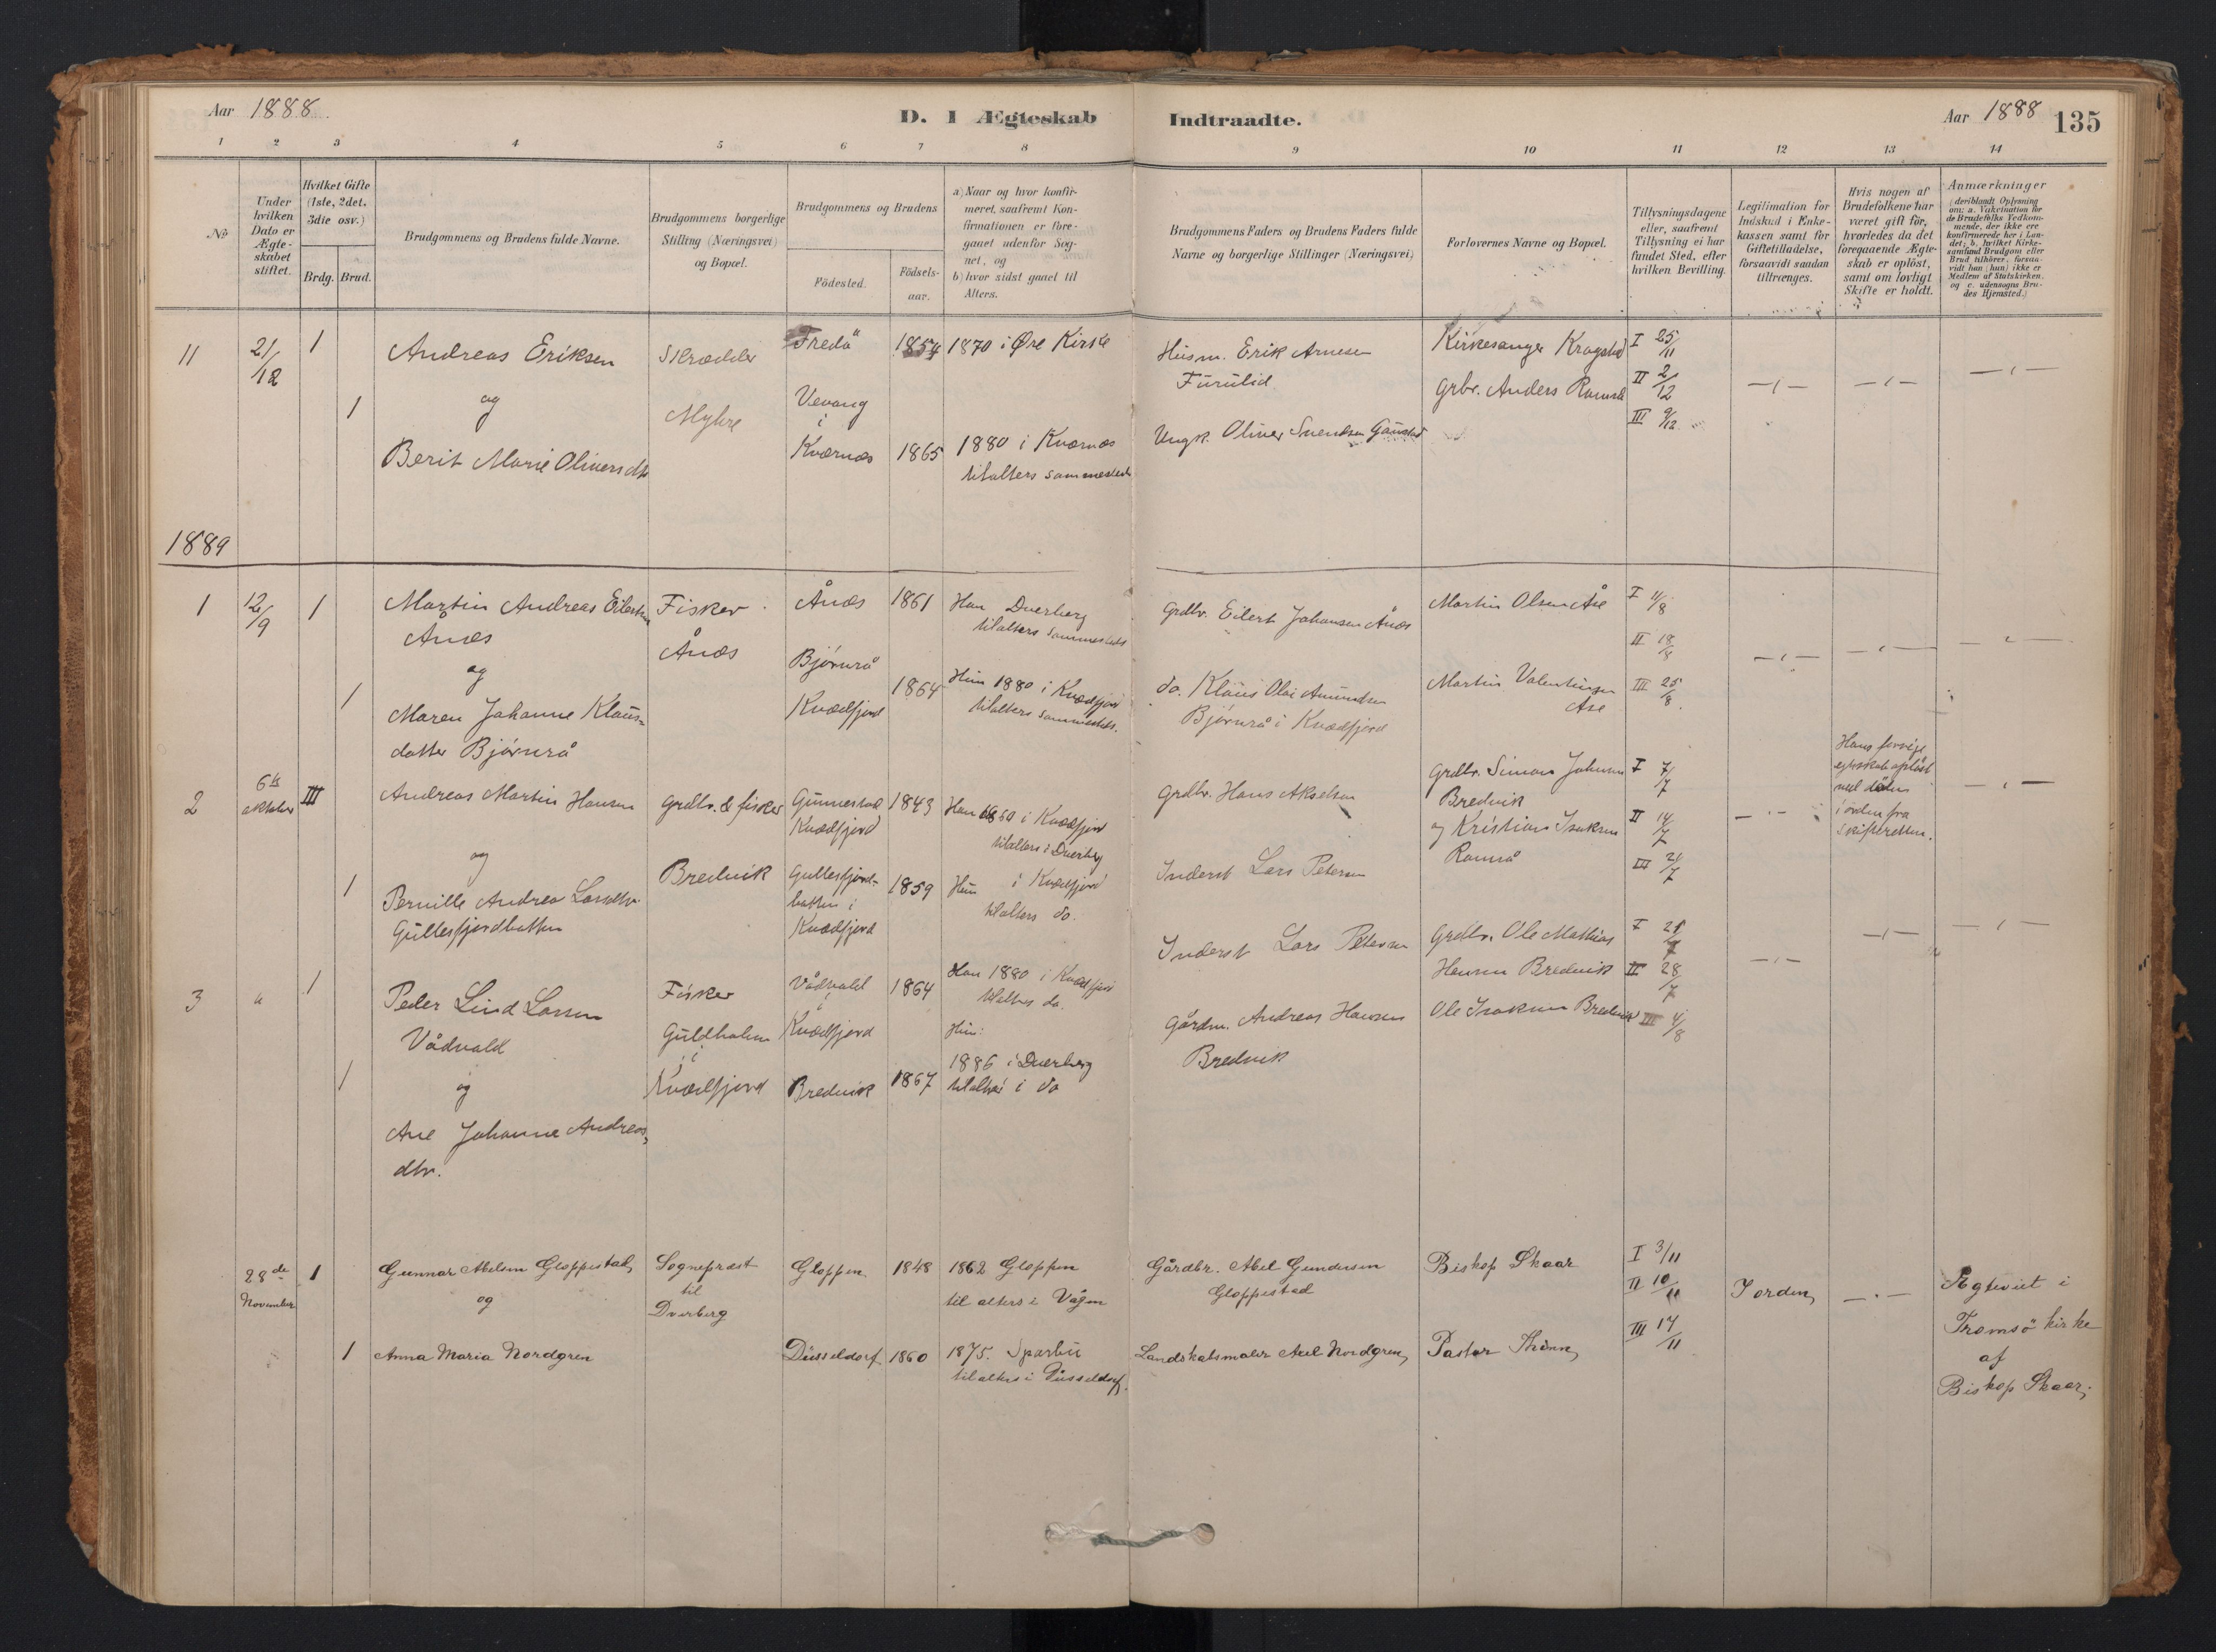 Aar 1888.
D. I Ægteskab Indtraadte.
Aar 1888
135
1 2 3 4 5 6 7 8 9 10 11 12 13 14
No
Under hvilken Dato er Ægteskabet stiftet.
Hvilket Gifte (1ste, 2det, 3die osv.)
Brdg. Brud.
Brudgommens og Brudens fulde Navne.
Brudgommens borgerlige Stilling (Næringsvei) og Bopæl.
Brudgommens og Brudens
Födested.
Födselsaar.
a) Naar og hvor konfirmeret, saafremt Konfirmationen er foregaaet udenfor Sognet, og
b) hvor sidst gaaet til Alters.
Brudgommens Faders og Brudens Faders fulde Navne og borgerlige Stillinger (Næringsvei)
Forlovernes Navne og Bopæl.
Tillysningsdagene eller, saafremt Tillysning ei har fundet Sted, efter hvilken Bevilling.
Legitimation for Indskud i Enkekassen samt for Giftetilladelse, forsaavidt saadan tiltrænges.
Hvis nogen af Brudefolkene har været gift för, hvorledes da det foregaaende Ægteskab er oplöst, samt om lovligt Skifte er holdt.
Anmærkninger (deriblandt Oplysning om: a. Vakcination for de Brudefolks Vedkommende, der ikke ere konfirmerede her i Landet; b. hvilket Kirkesamfund Brudgom eller Brud tilhörer, forsaavidt han (hun) ikke er Medlem af Statskirken, og c. udensogns Brudes Hjemsted.)
11 21/12 1 Andreas Eriksen Skrædder Fredö 1854 1870 i Øre Kirke
Husm. Erik Arnesen Furulid
Kirkesanger Kragstad I 25/11
Grbr. Anders II 2/12
III 9/12
1 og
Myhre Vevang i Kværnæs 1865 1880 i Kværnæs
tilalters sammesteds
Berit Marie Oliversdtr
Ungk. Oliver Svendsen Gaustad
1889
1 12/9 1 Martin Andreas Eilertsen Fisker Ånæs 1861 Han Dverberg
tilalters sammesteds
Grdbr. Eilert Johansen Ånæs Martin Olsen Åse I 11/8
Ånæs Ånæs
II 18/8
og
Bjørnrå Kvædfjord 1864 Hun 1880 i Kvædfjord
tilalters sammesteds.
1 Maren Johanne Klausdatter Bjørnrå
do. Klaus Olai Amundsen Bjørnrå i Kvædfjord
Martin Valentinsen Åse III 25/8
2 6te oktober III Andreas Martin Hansen grdbr. & fisker Gunnestad Kvædfjord 1843 Han 1860 i Kvædfjord
tilalters i Dverberg
Grdbr. Hans Akselsen
Grdbr. Simon Johnsen Bredvik I 7/7
og Kristian Isaksen Ramså II 14/7
III 21/7
Hans forrige egteskab opløst ved døden i orden fra Skifteretten.
og
1 Pernille Andrea Larsdtr. Gullesfjordbotten Bredvik Gullesfjordbotten i Kvædfjord 1859 Hun i Kvædfjord
tilalters do.
Inderst Lars Petersen
3 " 1 Peder Lind Larsen Vådvald Fisker Guldholm i Kvædfjord
Vådvald i Kvædfjord 1864 Han 1880 i Kvædfjord
tilalters do.
Inderst Lars Petersen
Grdbr. Ole Mathias Hansen Bredvik I 21/7
II 28/7
Ole Isaksen Bredvik III 4/8
1 og
Ane Johanne Andreasdtr. Bredvik 1867 Hun:
1886 i Dverberg
tilalters i do
Gårdm. Andreas Hansen Bredvik
28de November 1 Gunnar Abelsen Gloppestad, Sogneprest til Dverberg Gloppen 1848 1862 Gloppen
til alters i Vågen
Gårdbr. Abel Gundersen Gloppestad
Biskop Skaar I 3/11
II 10/11
III 17/11
I orden,
Ægteviet i Tromsö kirke af Biskop Skaar.
og
1 Anna Maria Nordgren Düsseldorf 1860 1875. Sparbu
til alters i Düsseldorf.
Landskabsmaler Axel Nordgren, Pastor